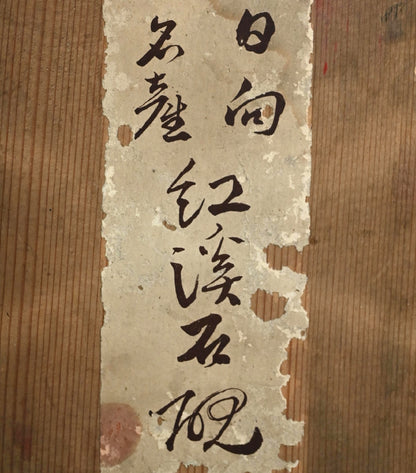 日向
名産
紅溪石硯